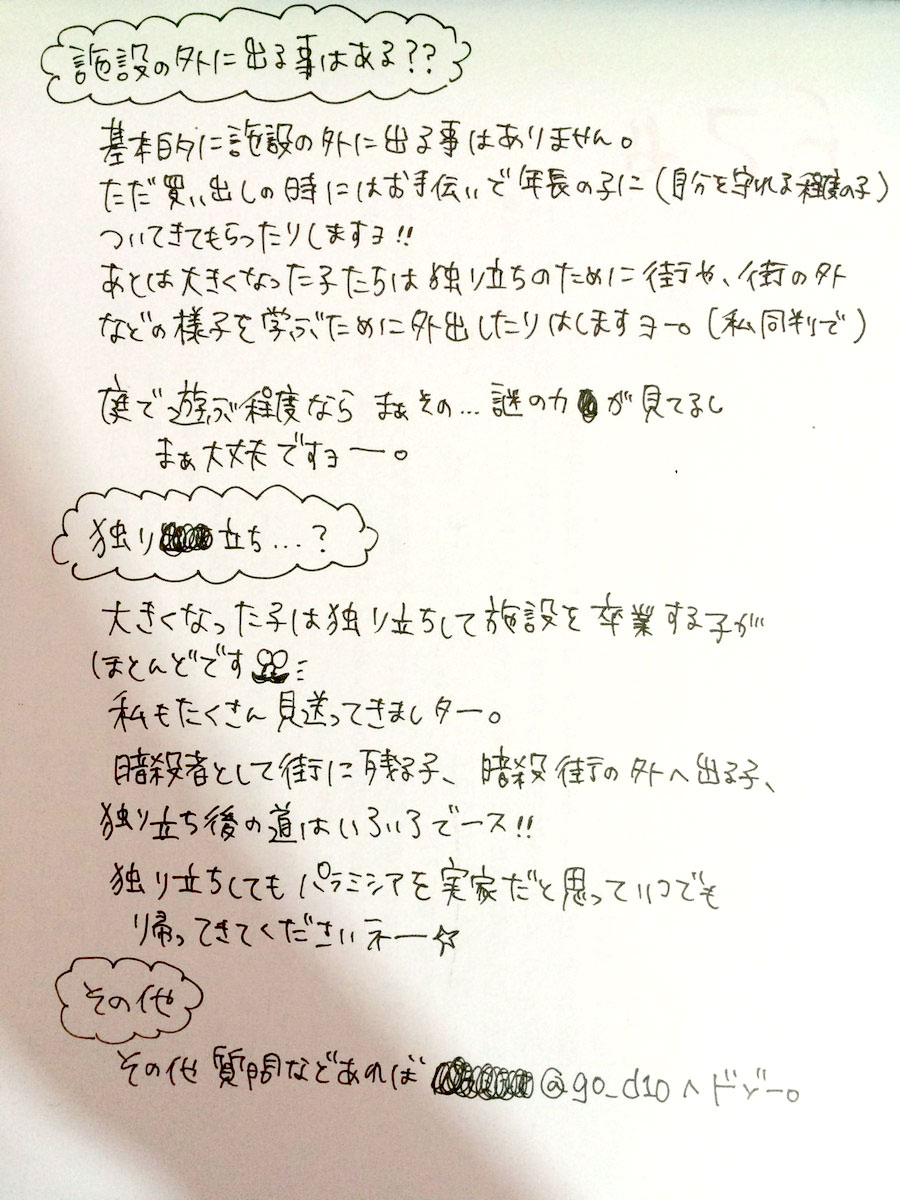 施設の外に出る事はある??
基本的に施設の外に出る事はありません。
ただ買い出しの時にはお手伝いで年長の子に(自分を守れる程度の子)
ついてきてもらったりしますヨ!!
あとは大きくなった子たちは独り立ちのために街や、街の外
などの様子を学ぶために外出したりはしますヨー。(私同判で)
庭で遊ぶ程度なら まぁその…謎の力が見てるし
まぁ大丈夫ですョー。
独り立ち…?
大きくなった子は独り立ちして施設を卒業する子が
ほとんどです
私もたくさん見送ってきましター。
暗殺者として街に残る子、暗殺街の外へ出る子、
独り立ち後の道はいろいろでース!!
独り立ちしてもパラミシアを実家だと思っていつでも
帰ってきてくださいネー☆
その他
その他質問などあれば @go_d10へドゾー。